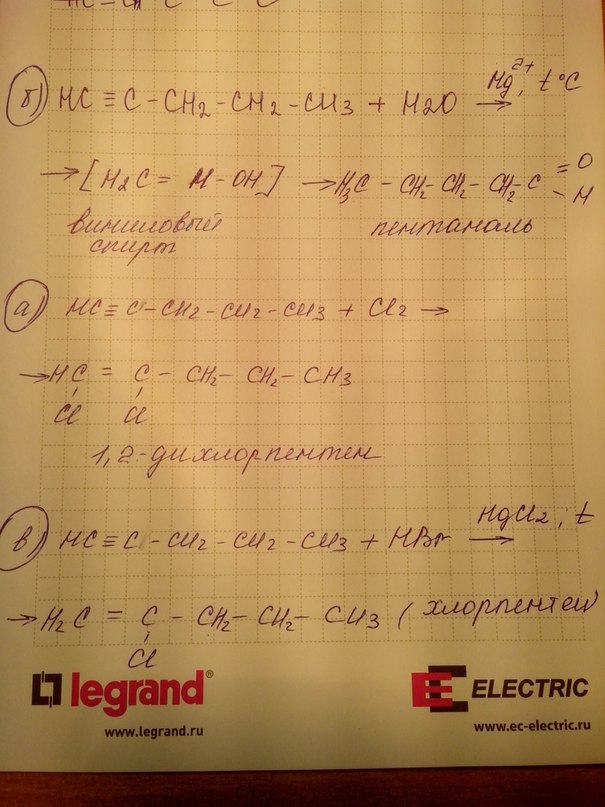 б) HC ≡ C - CH2 - CH2 - CH3 + H2O → Hg2+, t°C
→ [H2C = H - OH] → H3C - CH2 - CH2 - CH2 - C = O - H
виниловый спирт
пентаналь
а) HC ≡ C - CH2 - CH2 - CH3 + Cl2 →
→ HC = C - CH2 - CH2 - CH3
Cl Cl
1,2-дихлорпентен
в) HC ≡ C - CH2 - CH2 - CH3 + HBr → HgCl2, t
→ H2C = C - CH2 - CH2 - CH3 (хлорпентен)
Cl
legrand®
www.legrand.ru
EC ELECTRIC
www.ec-electric.ru